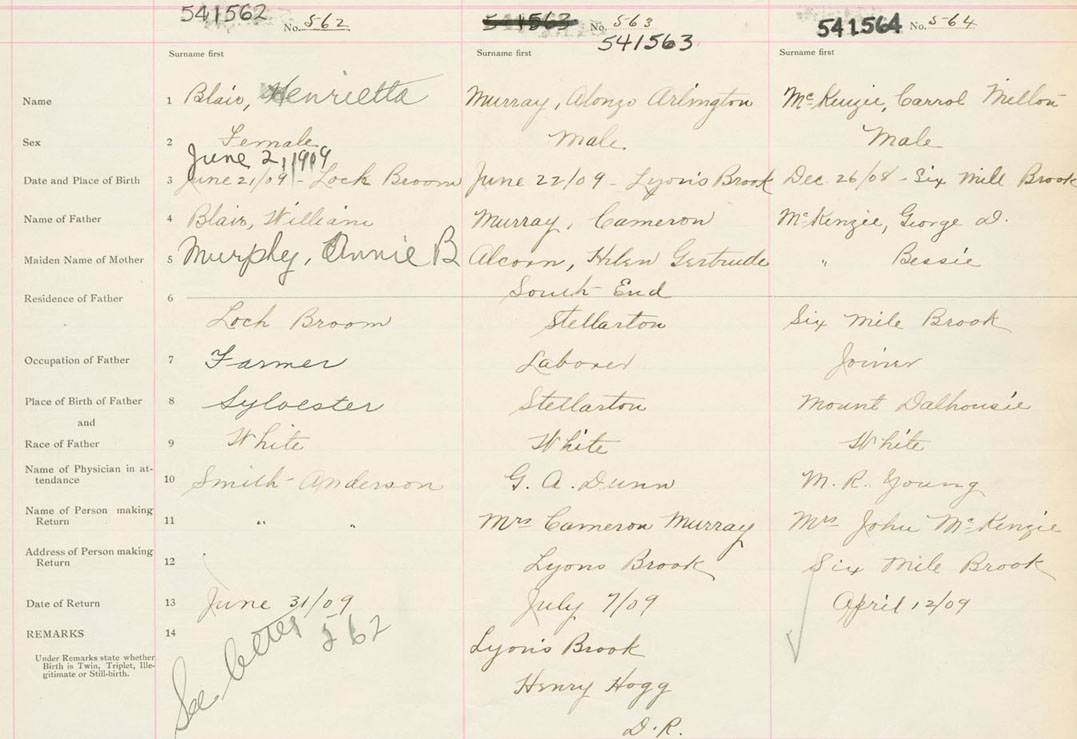 541562 No. 562 541563 No. 563 541564 No. 564
541563
Surname first Surname first Surname first
Name 1 Blair, Henrietta Murray, Alonzo Arlington McKenzie, Carrol Millon
Sex 2 Female Male Male
June 2, 1909
Date and Place of Birth 3 June 21/09 - Loch Broom June 22/09 - Lyon's Brook Dec. 26/08 - Six Mile Brook
Name of Father 4 Blair, William Murray, Cameron McKenzie, George D.
Maiden Name of Mother 5 Murphy, Annie B Alcorn, Helen Gertrude " Bessie
South End
Residence of Father 6
Loch Broom Stellarton Six Mile Brook
Occupation of Father 7 Farmer Laborer Joiner
Place of Birth of Father 8 Sylvester Stellarton Mount Dalhousie
and
Race of Father 9 White White White
Name of Physician in at-
tendance 10 Smith Anderson G. A. Dunn M. R. Young
Name of Person making
Return 11 " " Mrs Cameron Murray Mrs John McKenzie
Address of Person making
Return 12 Lyons Brook Six Mile Brook
Date of Return 13 June 31/09 July 7/09 April 12/09
REMARKS 14 See letter 562 Lyon's Brook
Under Remarks state whether
Birth is Twin, Triplet, Ille-
gitimate or Still-birth.
Henry Hogg
D.R.